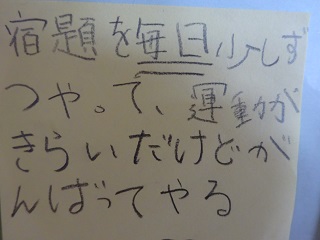 宿題を毎日少しず
つやって、運動が
きらいだけどが
んばってやる